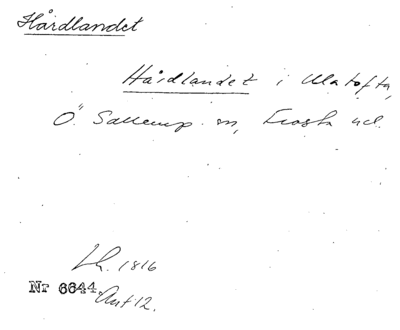 Hårdlandet
Hårdlandet i Ulatofta,
Ö. Sallerup sn, Frosta hd.
Lh. 1816
Nr 6644. Ant 12.